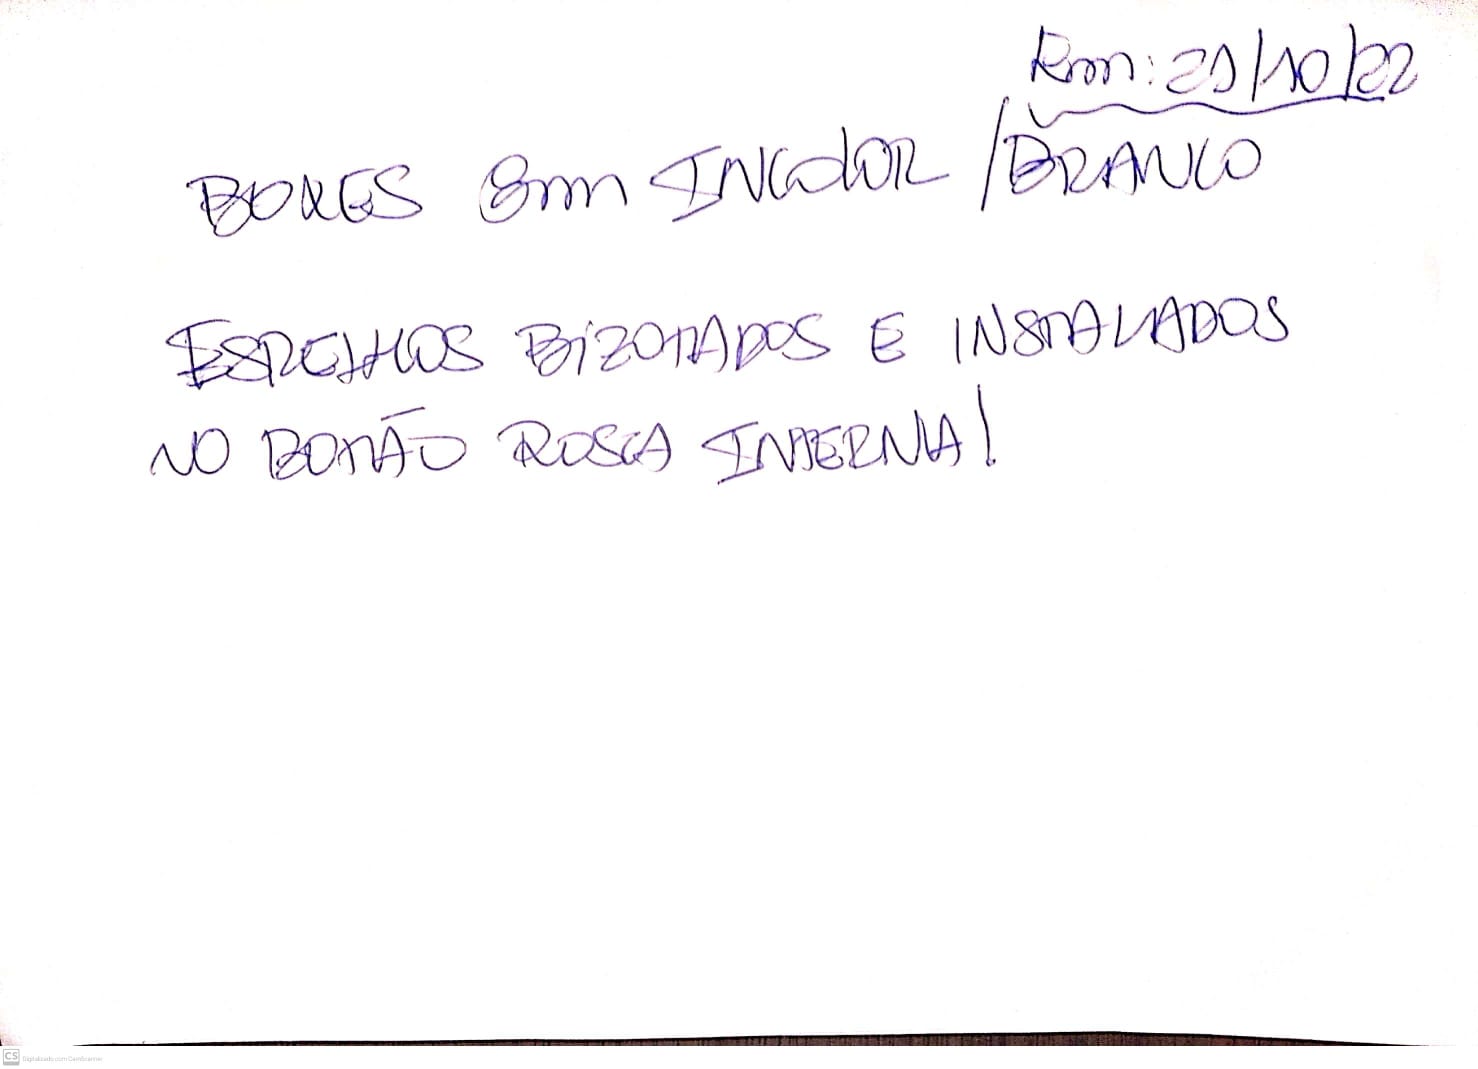 Rmm: 21/10/22
BOXES 8mm INColOR / BRANCO
ESPELHOS BiZOTADOS E INSTALADOS
NO BOTÃO ROSCA INTERNA!
CS Digitalizado com CamScanner